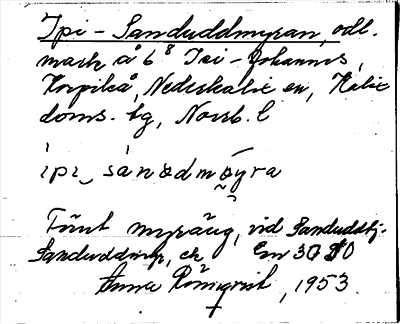 Ipi-Sanduddmyran, odl.
mark å 6⁸ Isi-Johannis,
Korpikå, Nederkalix sn, Kalix
doms. tg, Norrb. l
ìpi‿sánødmøyra
Förut myräng, vid Sanduddtj.
Sanduddmyr, ek 30 10
Anna Rönnqvist, 1953